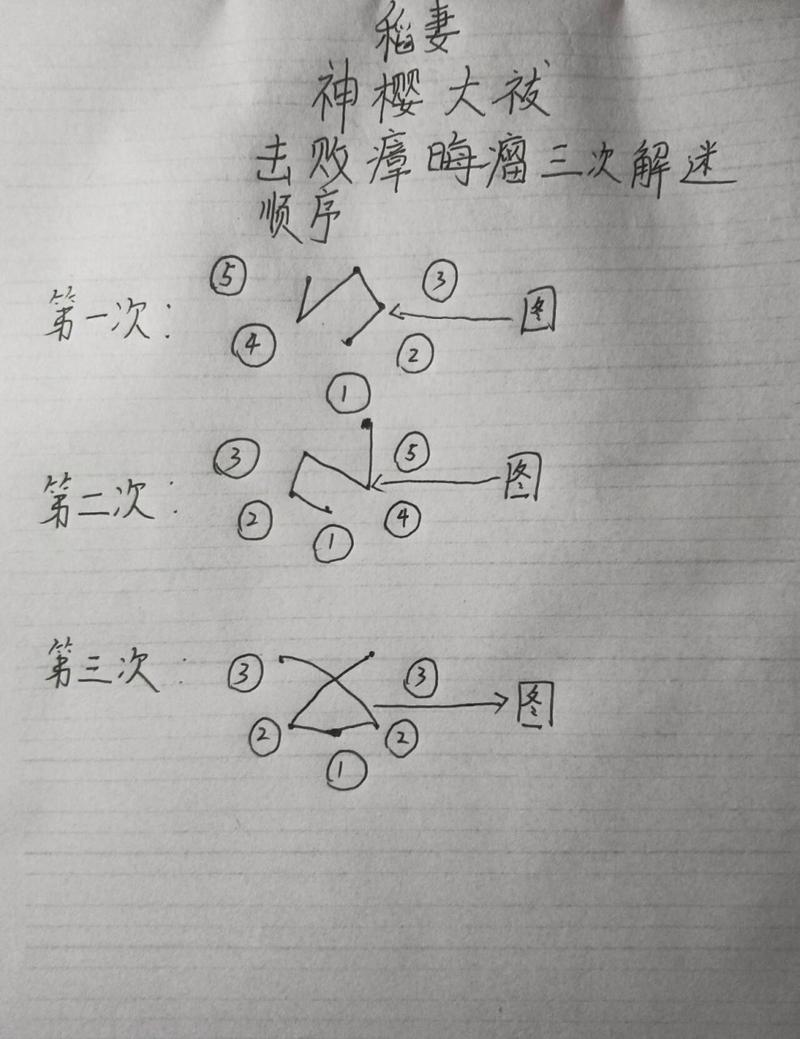 稻妻
神樱大祓
击败瘴晦瘤三次解迷
顺序
第一次：
⑤ ③ 图
④ ②
①
第二次：
③ ⑤ 图
② ④
①
第三次：
③ ③ 图
② ②
①